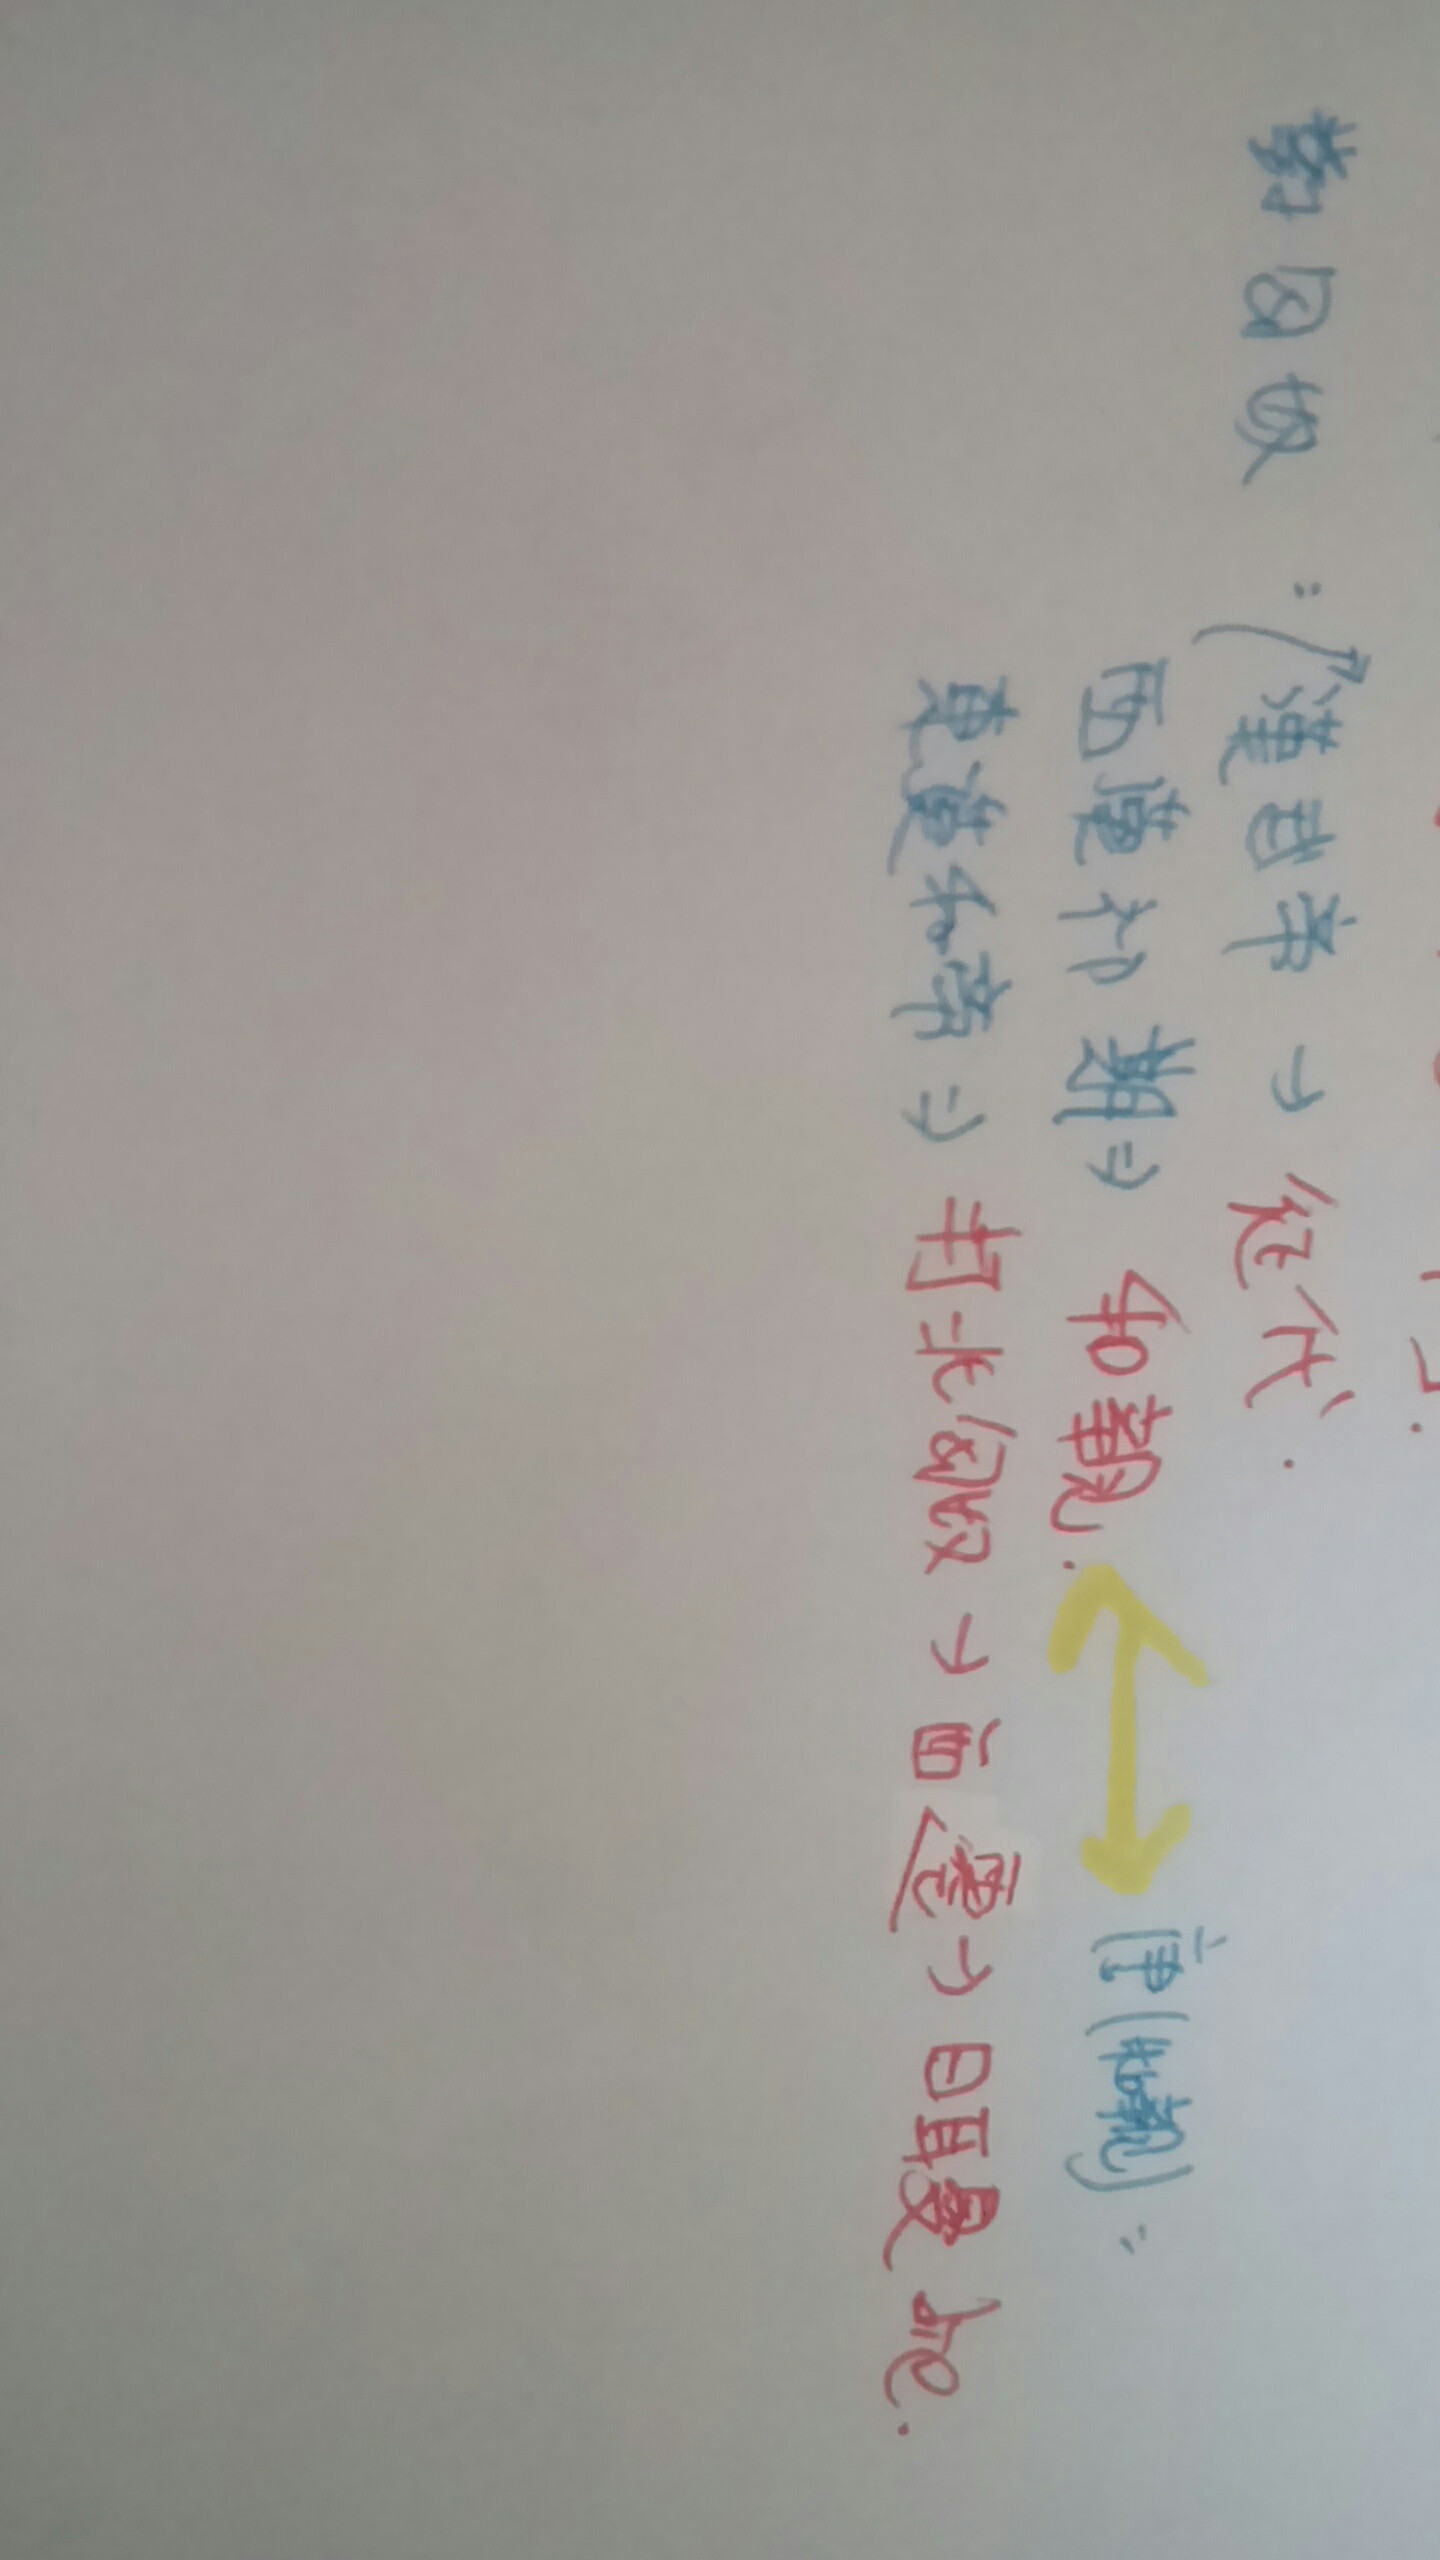 對匈奴：漢武帝 → 征伐.
西漢初期 ⇒ 和親. ↔ 唐(和親)
東漢和帝 ⇒ 打北匈奴 → 西遷 → 日耳曼